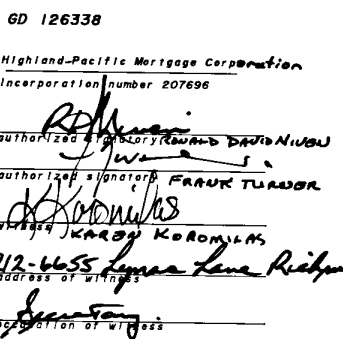 GD 126338
Highland-Pacific Mortgage Corporation
incorporation number 207696
authorized signatory RONALD DAVID NIVEN
authorized signatory FRANK TURNER
witness KAREN KOROMILAS
212-6655 Lynas Lane
address of witness
Secretary
occupation of witness